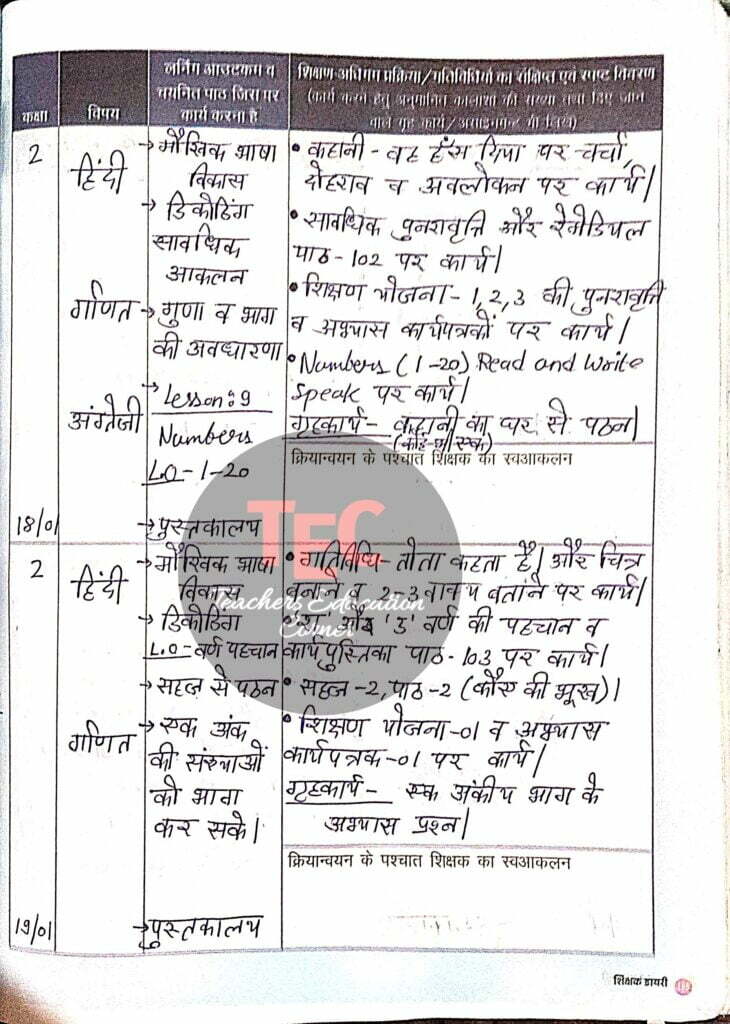 कक्षा
विषय
लर्निंग आउटकम व
चयनित पाठ जिस पर
कार्य करना है
शिक्षण-अधिगम प्रक्रिया/गतिविधियों का संक्षिप्त एवं स्पष्ट विवरण
(कार्य करने हेतु अनुमानित कालांश की संख्या तथा दिए जाने
वाले गृह कार्य/असाइनमेन्ट को लिखें)
2
हिंदी
→ मौखिक भाषा
विकास
→ डिकोडिंग
सावधिक
आकलन
• कहानी - वह हँस दिया पर चर्चा,
दोहराव व अवलोकन पर कार्य।
• सावधिक पुनरावृत्ति और रेमेडियल
पाठ-102 पर कार्य।
गणित
→ गुणा व भाग
की अवधारणा
• शिक्षण योजना-1,2,3 की पुनरावृत्ति
व अभ्यास कार्यपत्रकों पर कार्य।
अंग्रेजी
→ Lesson:9
Numbers
L.O-1-20
• Numbers (1-20) Read and Write
Speak पर कार्य।
गृहकार्य- कहानी का घर से पठन।
(कोई-भी एक)
क्रियान्वयन के पश्चात शिक्षक का स्वआकलन
18/01
→ पुस्तकालय
2
हिंदी
→ मौखिक भाषा
विकास
→ डिकोडिंग
L.O-वर्ण पहचान
→ सहज से पठन
• गतिविधि- तोता कहता है। और चित्र
बनाने व 2-3 वाक्य बताने पर कार्य।
और 'ड' वर्ण की पहचान व
कार्यपुस्तिका पाठ-103 पर कार्य।
• सहज-2, पाठ-2 (कौए की भूख)।
गणित
→ एक अंक
की संख्याओं
को भाग
कर सके।
• शिक्षण योजना-01 व अभ्यास
कार्यपत्रक-01 पर कार्य।
गृहकार्य- एक अंकीय भाग के
अभ्यास प्रश्न।
क्रियान्वयन के पश्चात शिक्षक का स्वआकलन
19/01
→ पुस्तकालय
TEC
Teachers Education
Corner
शिक्षक डायरी